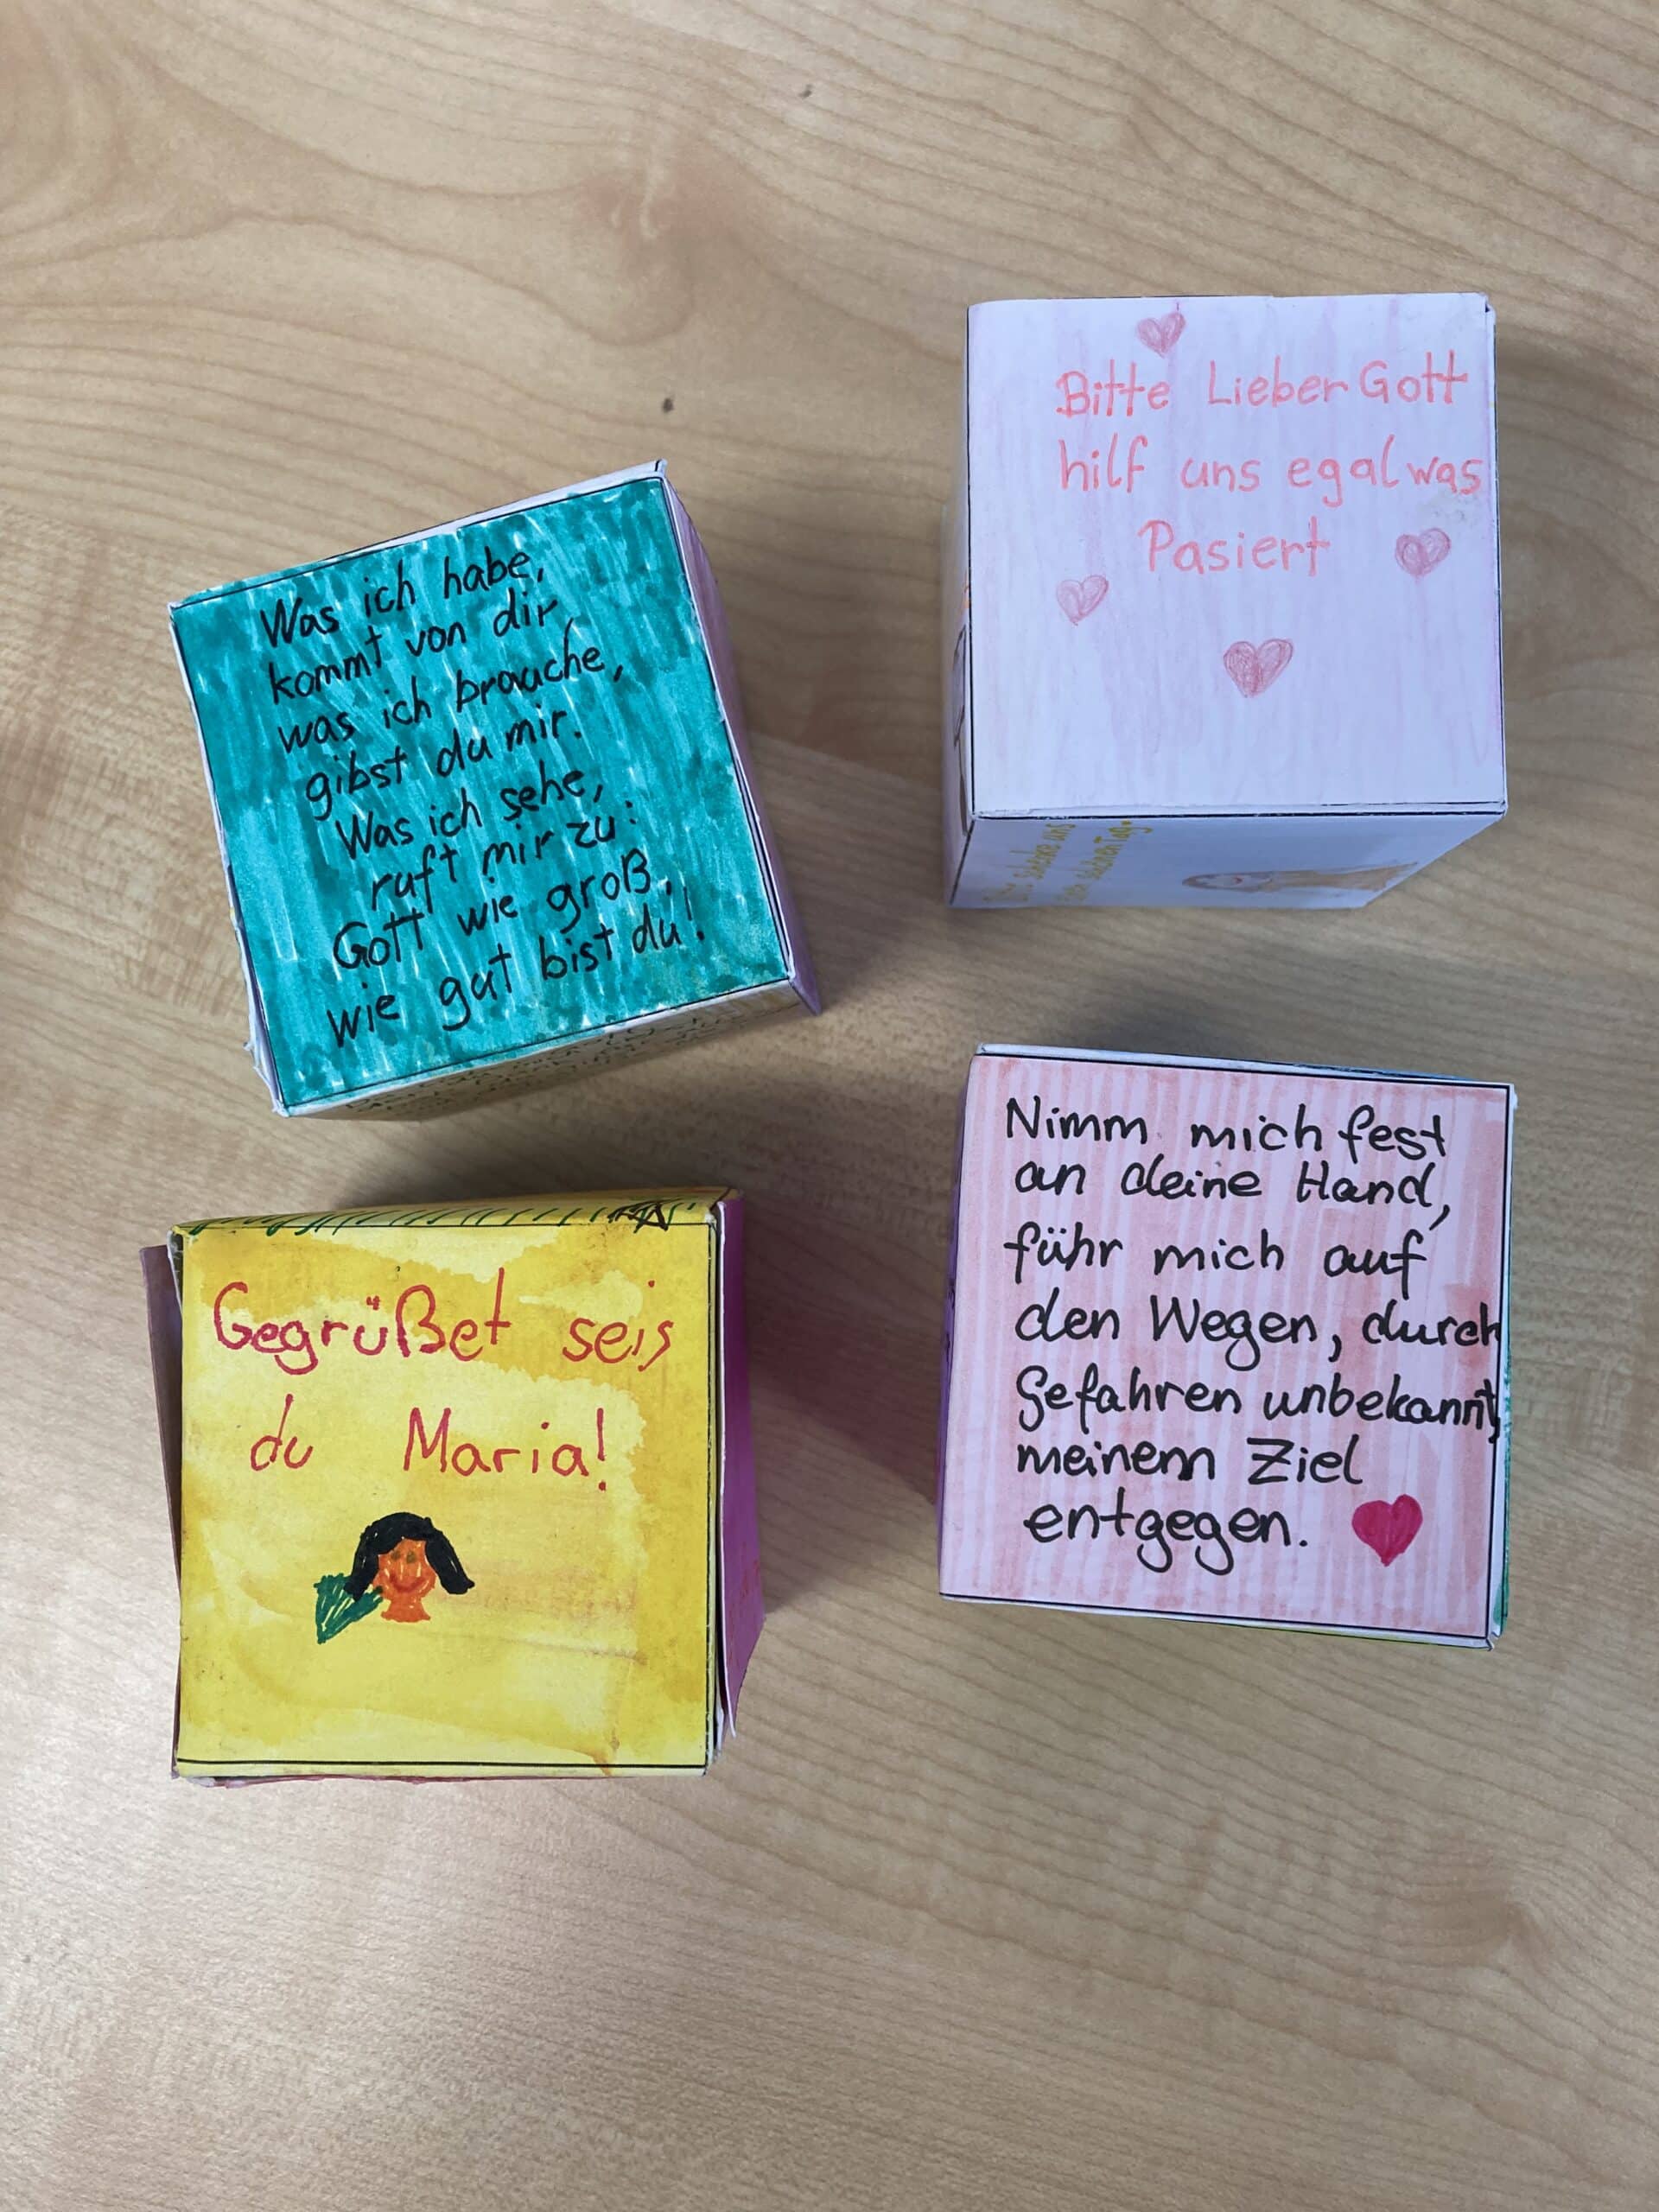 Was ich habe,
kommt von dir,
was ich brauche,
gibst du mir.
Was ich sehe,
ruft mir zu:
Gott wie groß,
wie gut bist du!
Bitte Lieber Gott
hilf uns egal was
Pasiert
Gegrüßet seis
du Maria!
Nimm mich fest
an deine Hand,
führ mich auf
den Wegen, durch
Gefahren unbekannt,
meinem Ziel
entgegen.